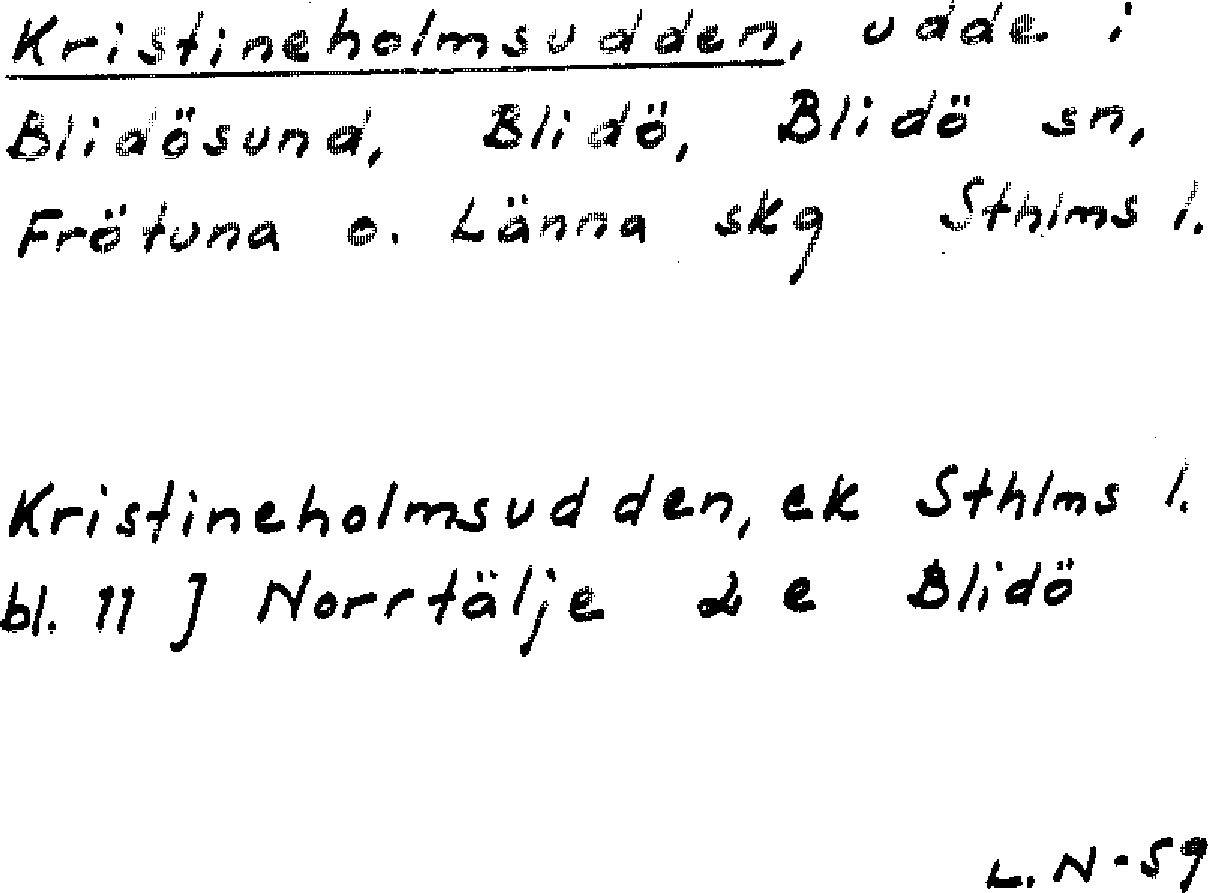 Kristineholmsudden, udde i
Blidösund, Blidö, Blidö sn,
Frötuna o. Länna skg Sthlms l.
Kristineholmsudden, ek Sthlms l.
bl. 11 J Norrtälje 2 e Blidö
L. N-59